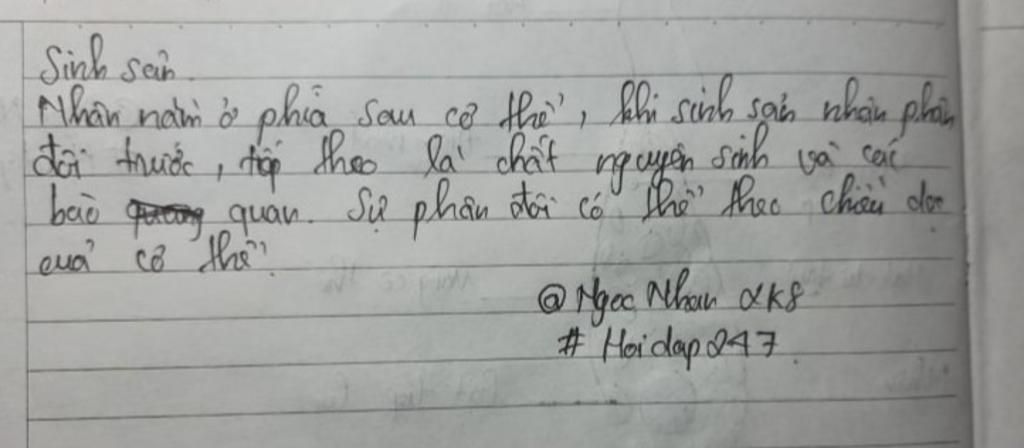 Sinh sản.
Nhân nằm ở phía sau cơ thể, khi sinh sản nhân phân
đôi trước, tiếp theo là chất nguyên sinh và các
bào quan. Sự phân đôi có thể theo chiều dọc
cuả cơ thể.
@Ngoc Nhan 2K8
# Hoidap247.